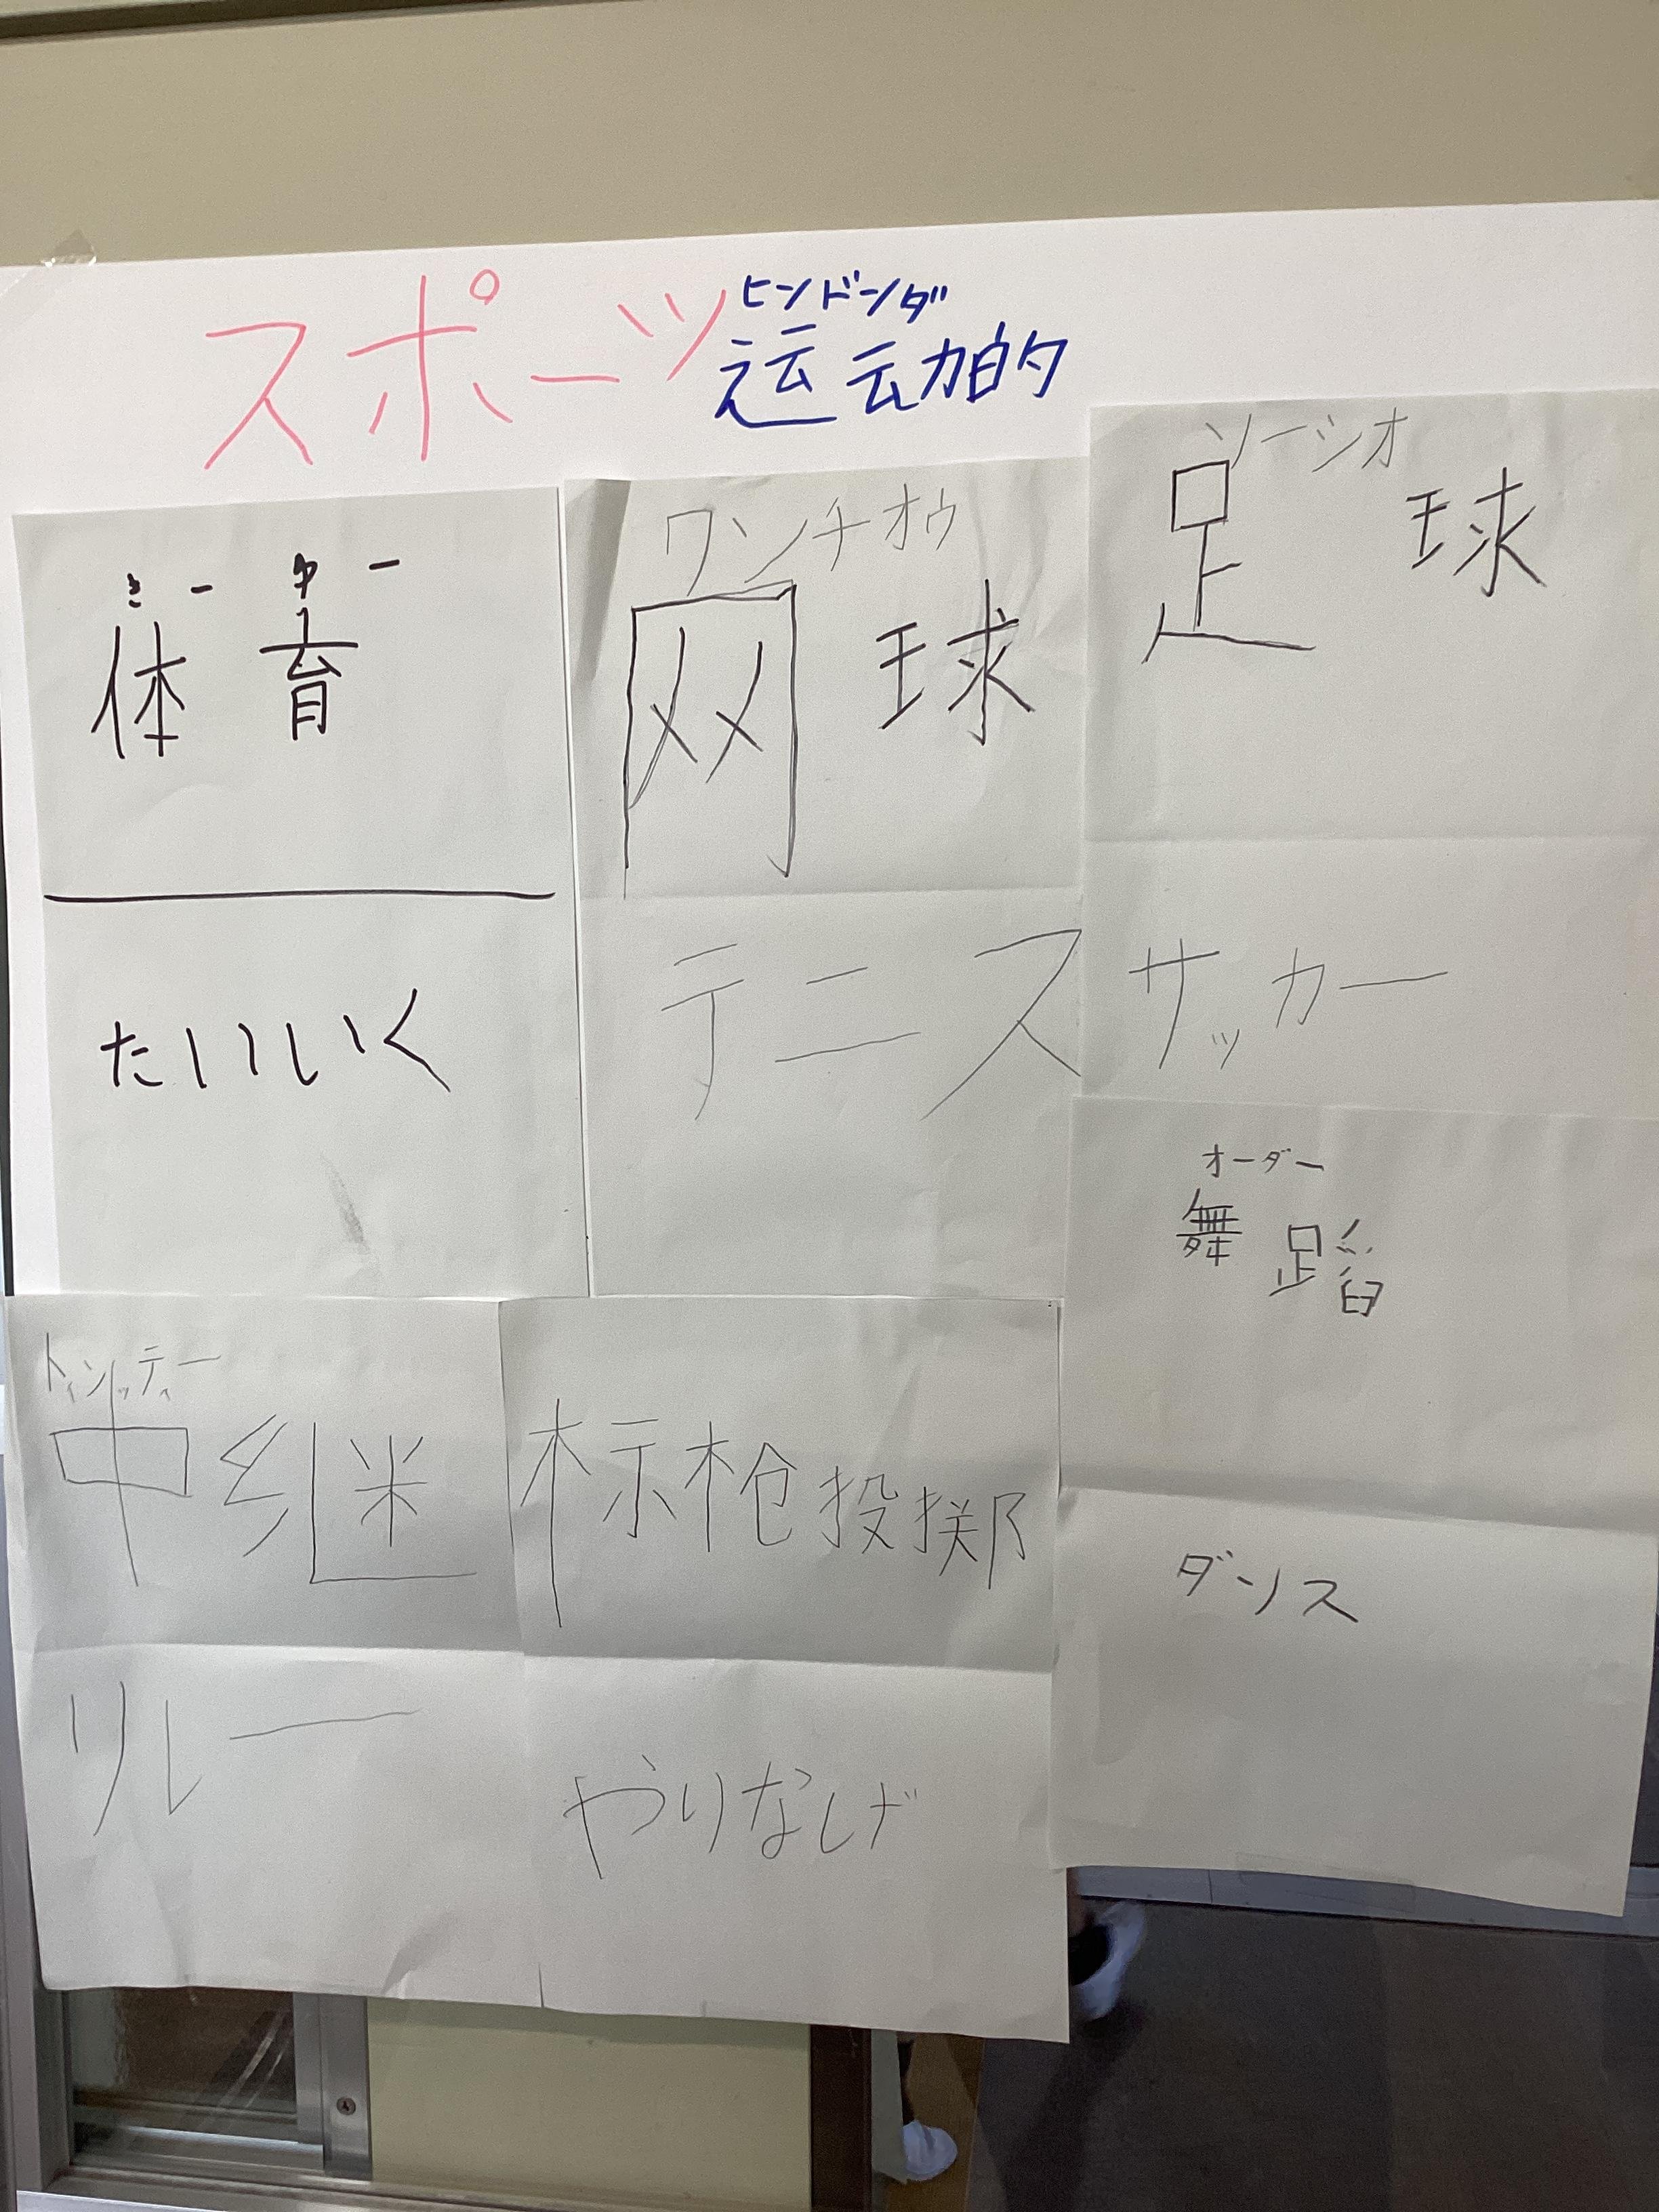 スポーツ
ヒンドンダ
运动的
体育
たいいく
ワンチオウ
网球
テニス
ソーシオ
足球
サッカー
オーダー
舞蹈
ダンス
中继
リレー
标枪投掷
やりなげ